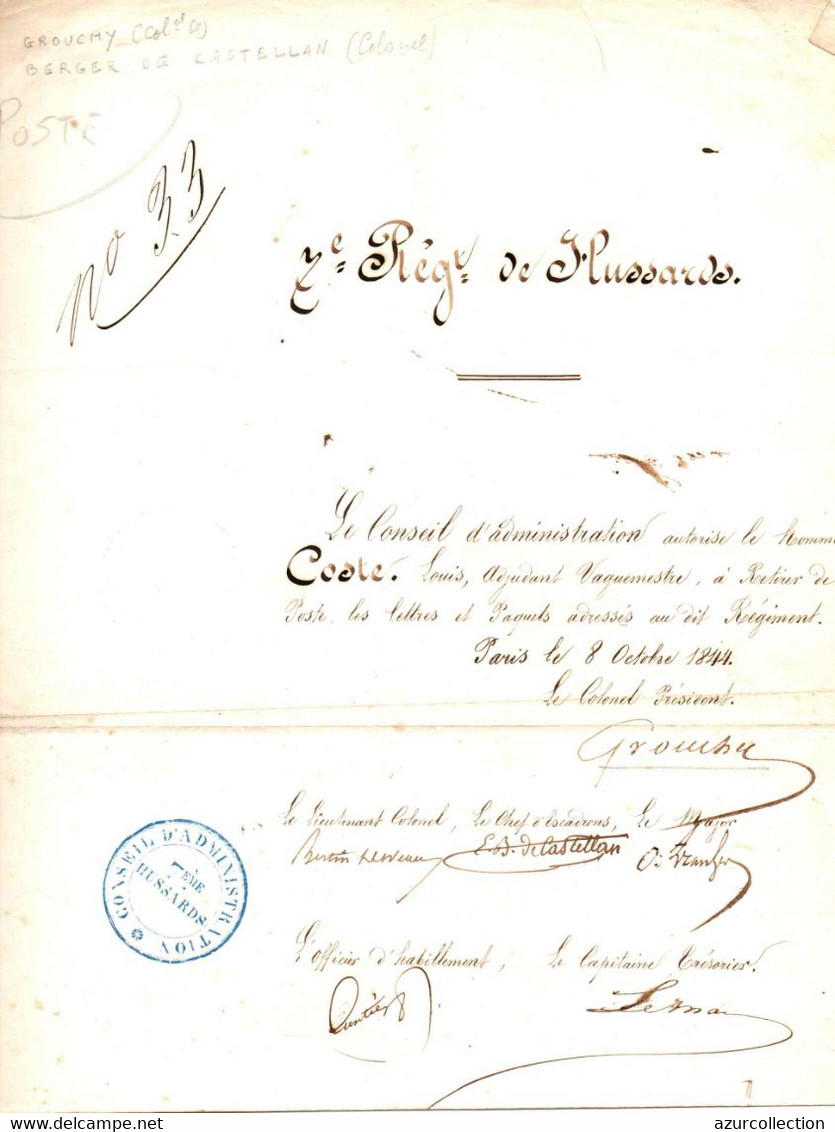 GROUCHY (Colel de)
BERGER DE CASTELLAN (Colonel)
POSTE
no 33
7e Régt de Hussards.
Le Conseil d'administration autorise le Nommé
Coste. Louis, Adjudant Vaguemestre, à Retirer de
Poste, les lettres et Paquets adressés au dit Régiment.
Paris le 8 Octobre 1844.
Le Colonel Président.
Grouchy
Le Lieutenant Colonel, Le Chef d'Escadrons, Le Major
E. B. de Castellan
CONSEIL D'ADMINISTRATION
7ÈME
HUSSARDS.
L'Officier d'habillement, Le Capitaine Trésorier.
Delcampe.net
azurcollection